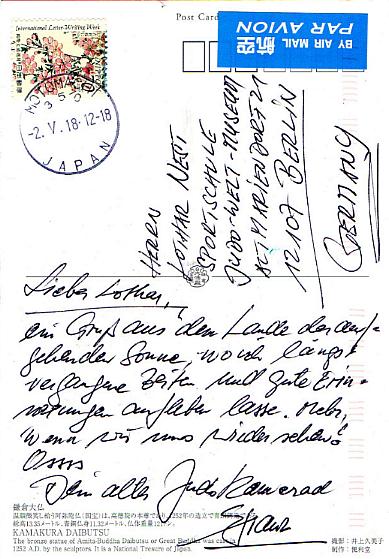 Post Card
航空
BY AIR MAIL
PAR AVION
International Letter-Writing Week
MOTOMACHI
-2.V.18·12-18
JAPAN
HERRN
LOTHAR NEST
SPORTSCHULE
JUDO-WELT-MUSEUM
ALT MARIENDORF 21
12107 BERLIN
GERMANY
Lieber Lothar,
ein Gruß aus dem Lande der auf-
gehenden Sonne, wo ich längst
vergangene Zeiten und gute Erin-
nerungen aufleben lasse. Mehr,
wenn wir uns wiedersehen!
Osss
Dein alter Judo Kamerad
鎌倉大仏
KAMAKURA DAIBUTSU
The bronze statue of Amita-Buddha Daibutsu or Great Buddha was cast in
1252 A.D. by the sculptors. It is a National Tresure of Japan.
撮影:井上久美子